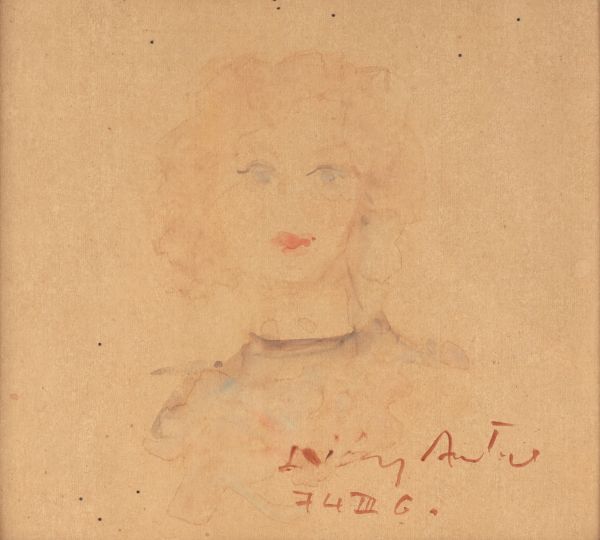 Diósy Antal
74 III 6.